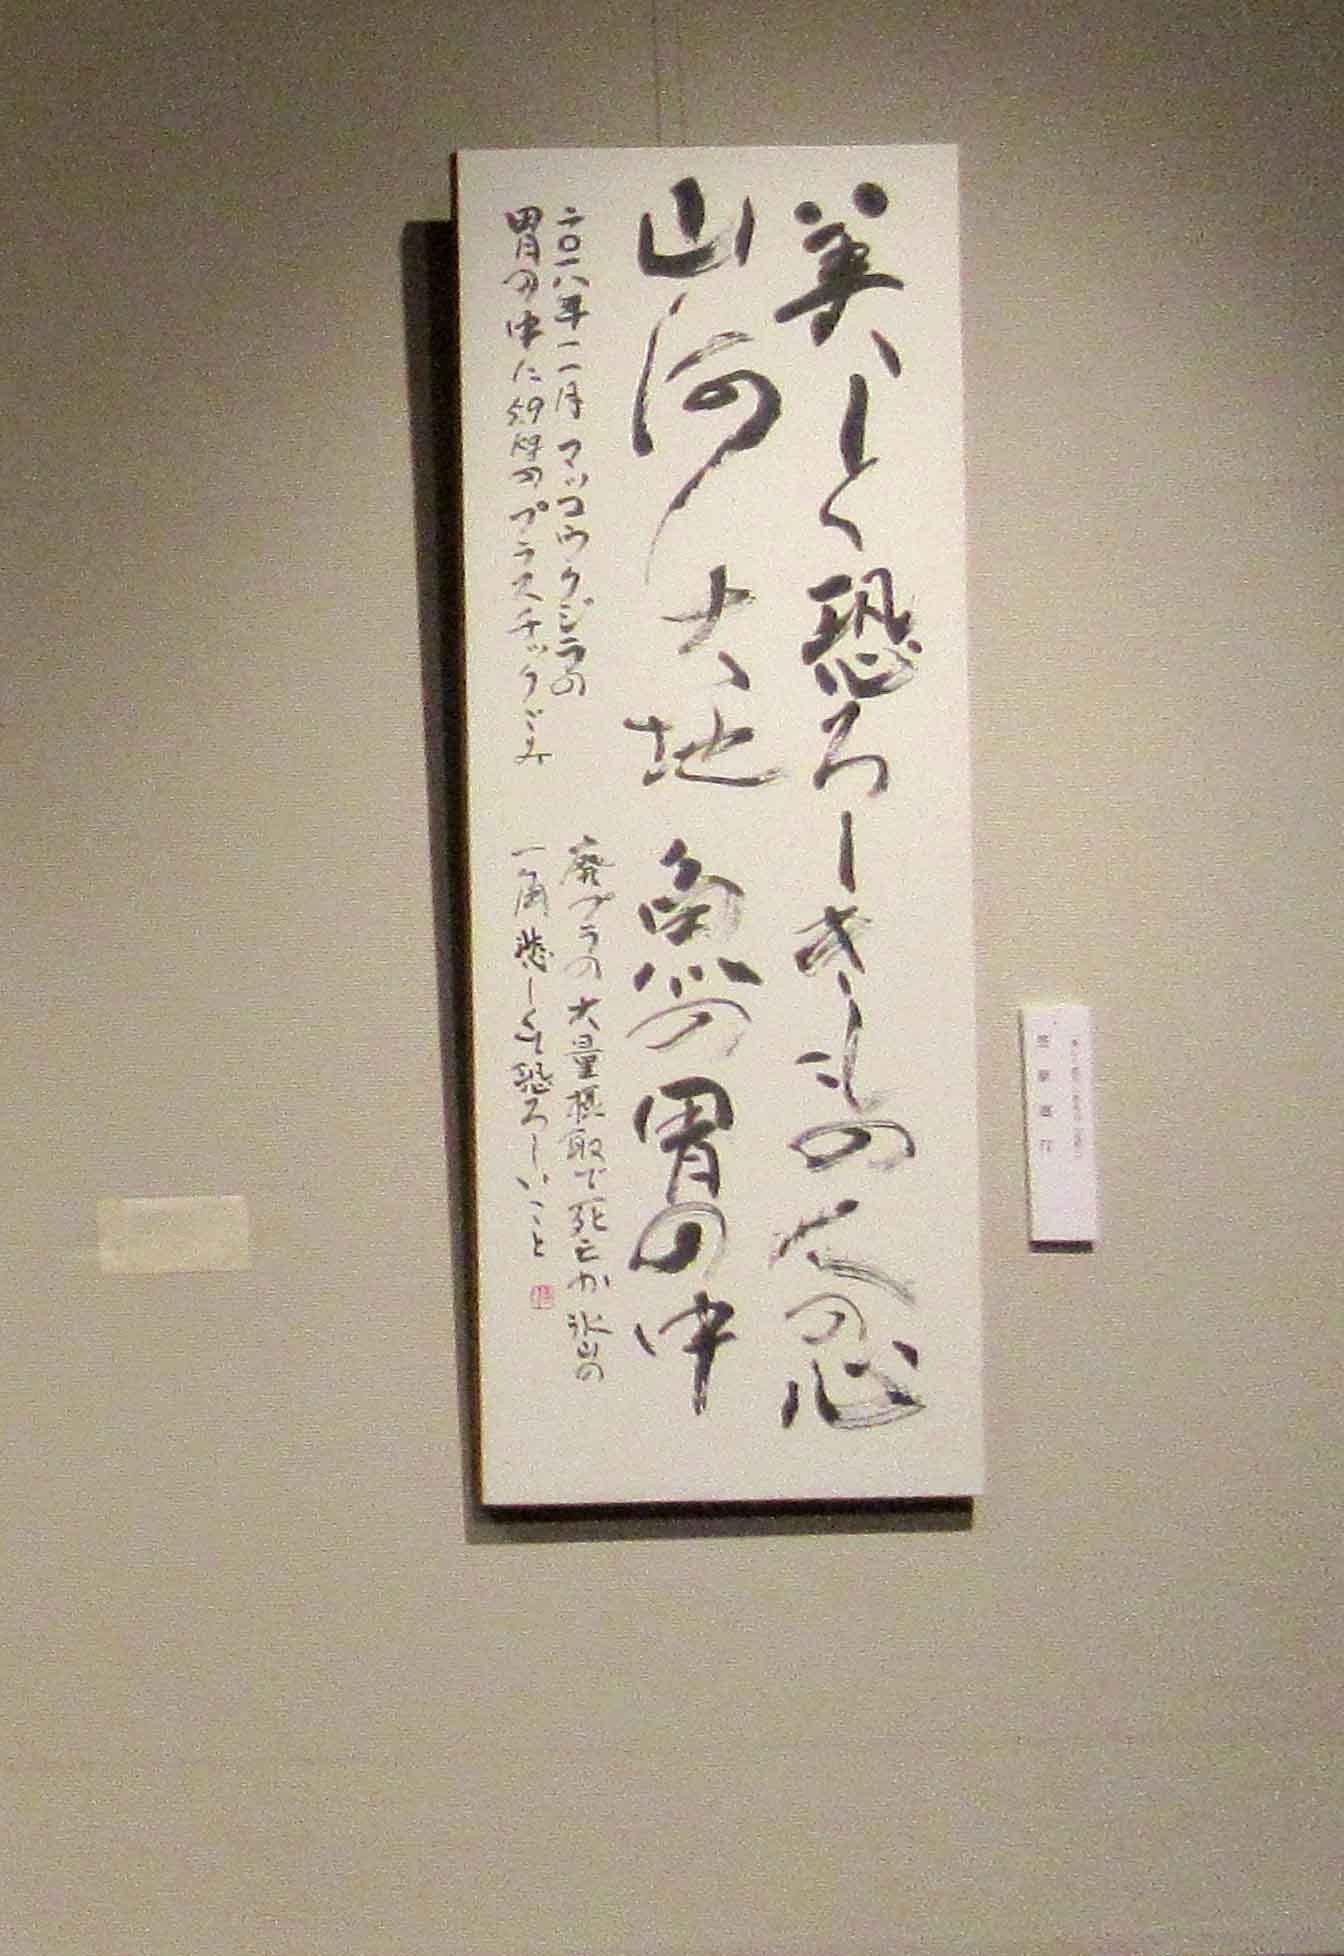 美しく恐ろしきもの人の心
山河大地魚の胃の中
二〇一八年一一月 マッコウクジラの
胃の中に5.9kgのプラスチックごみ
廃プラの大量摂取で死亡か 氷山の
一角 悲しくも恐ろしいこと